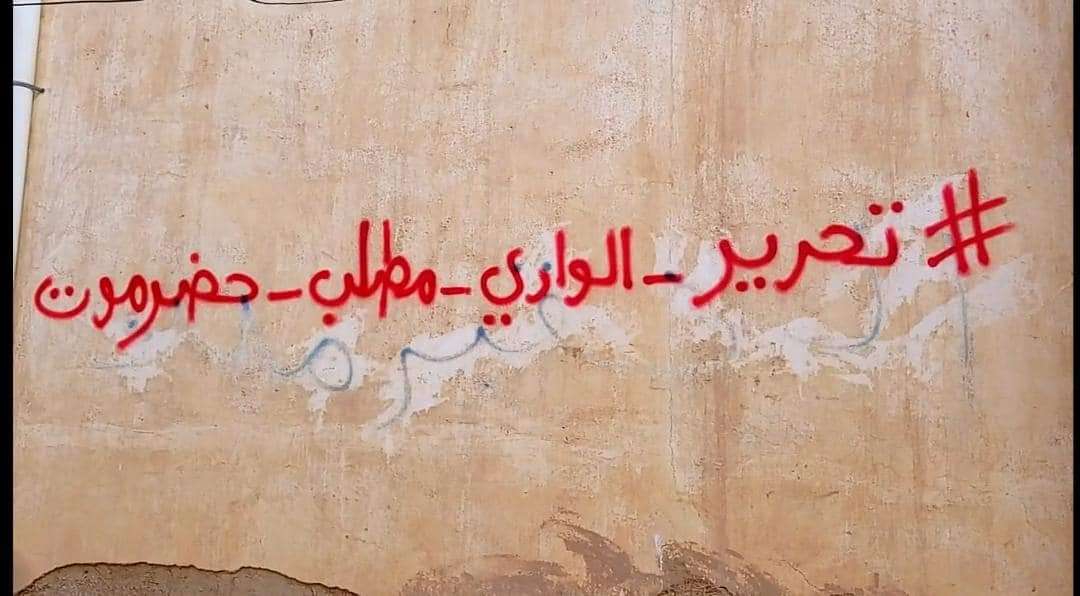 #تحرير_الوادي_مطلب_حضرموت